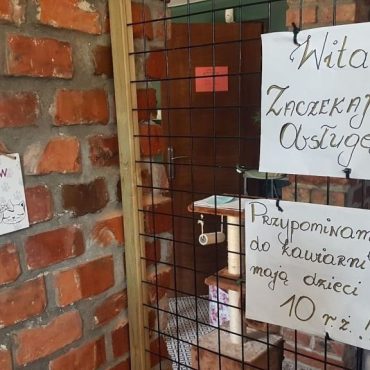 Wita
ZACZEKAJ
Obsługę
Przypominam
do kawiarni
mają dzieci
10 r.ż.!